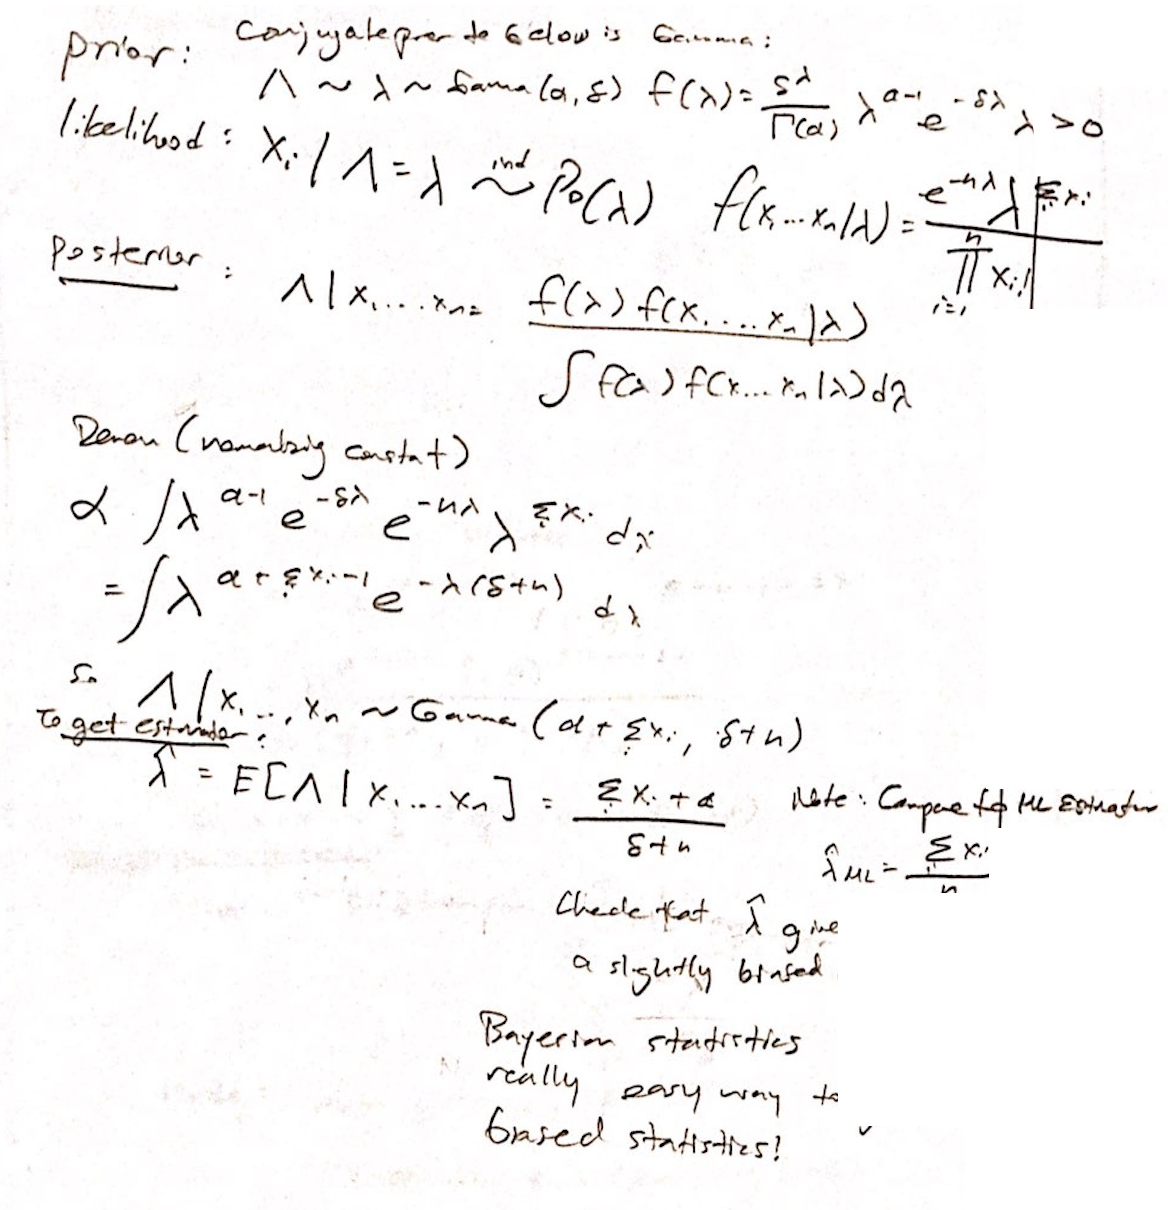 prior: Conjugate prer to below is Gamma:
Λ ~ λ ~ Gama(α, δ) f(λ) = δ^λ / Γ(α) λ^{α-1} e^{-δλ} λ > 0
likelihood: X_i / Λ = λ ind ~ Po(λ) f(x_1 ... x_n | λ) = e^{-nλ} λ^{Σx_i} / ∏_{i=1}^{n} x_i!
Posterior: Λ | x_1 .... x_n = f(λ) f(x_1 .... x_n | λ) / ∫ f(λ) f(x_1 ... x_n | λ) dλ
Denom (normalizing constat)
α ∫ λ^{α-1} e^{-δλ} e^{-nλ} λ^{Σx_i} dλ
= ∫ λ^{α + Σx_i - 1} e^{-λ(δ+n)} dλ
So Λ | x_1 ..., x_n ~ Gamma (α + Σx_i, δ + n)
To get estimator:
λ̂ = E[Λ | x_1 ... x_n] = Σx_i + α / δ + n
Note: Compare to ML Estimator
λ̂_{ML} = Σx_i / n
Check that λ̂ give
a slightly biased
Bayesian statistics
really easy way to
biased statistics!